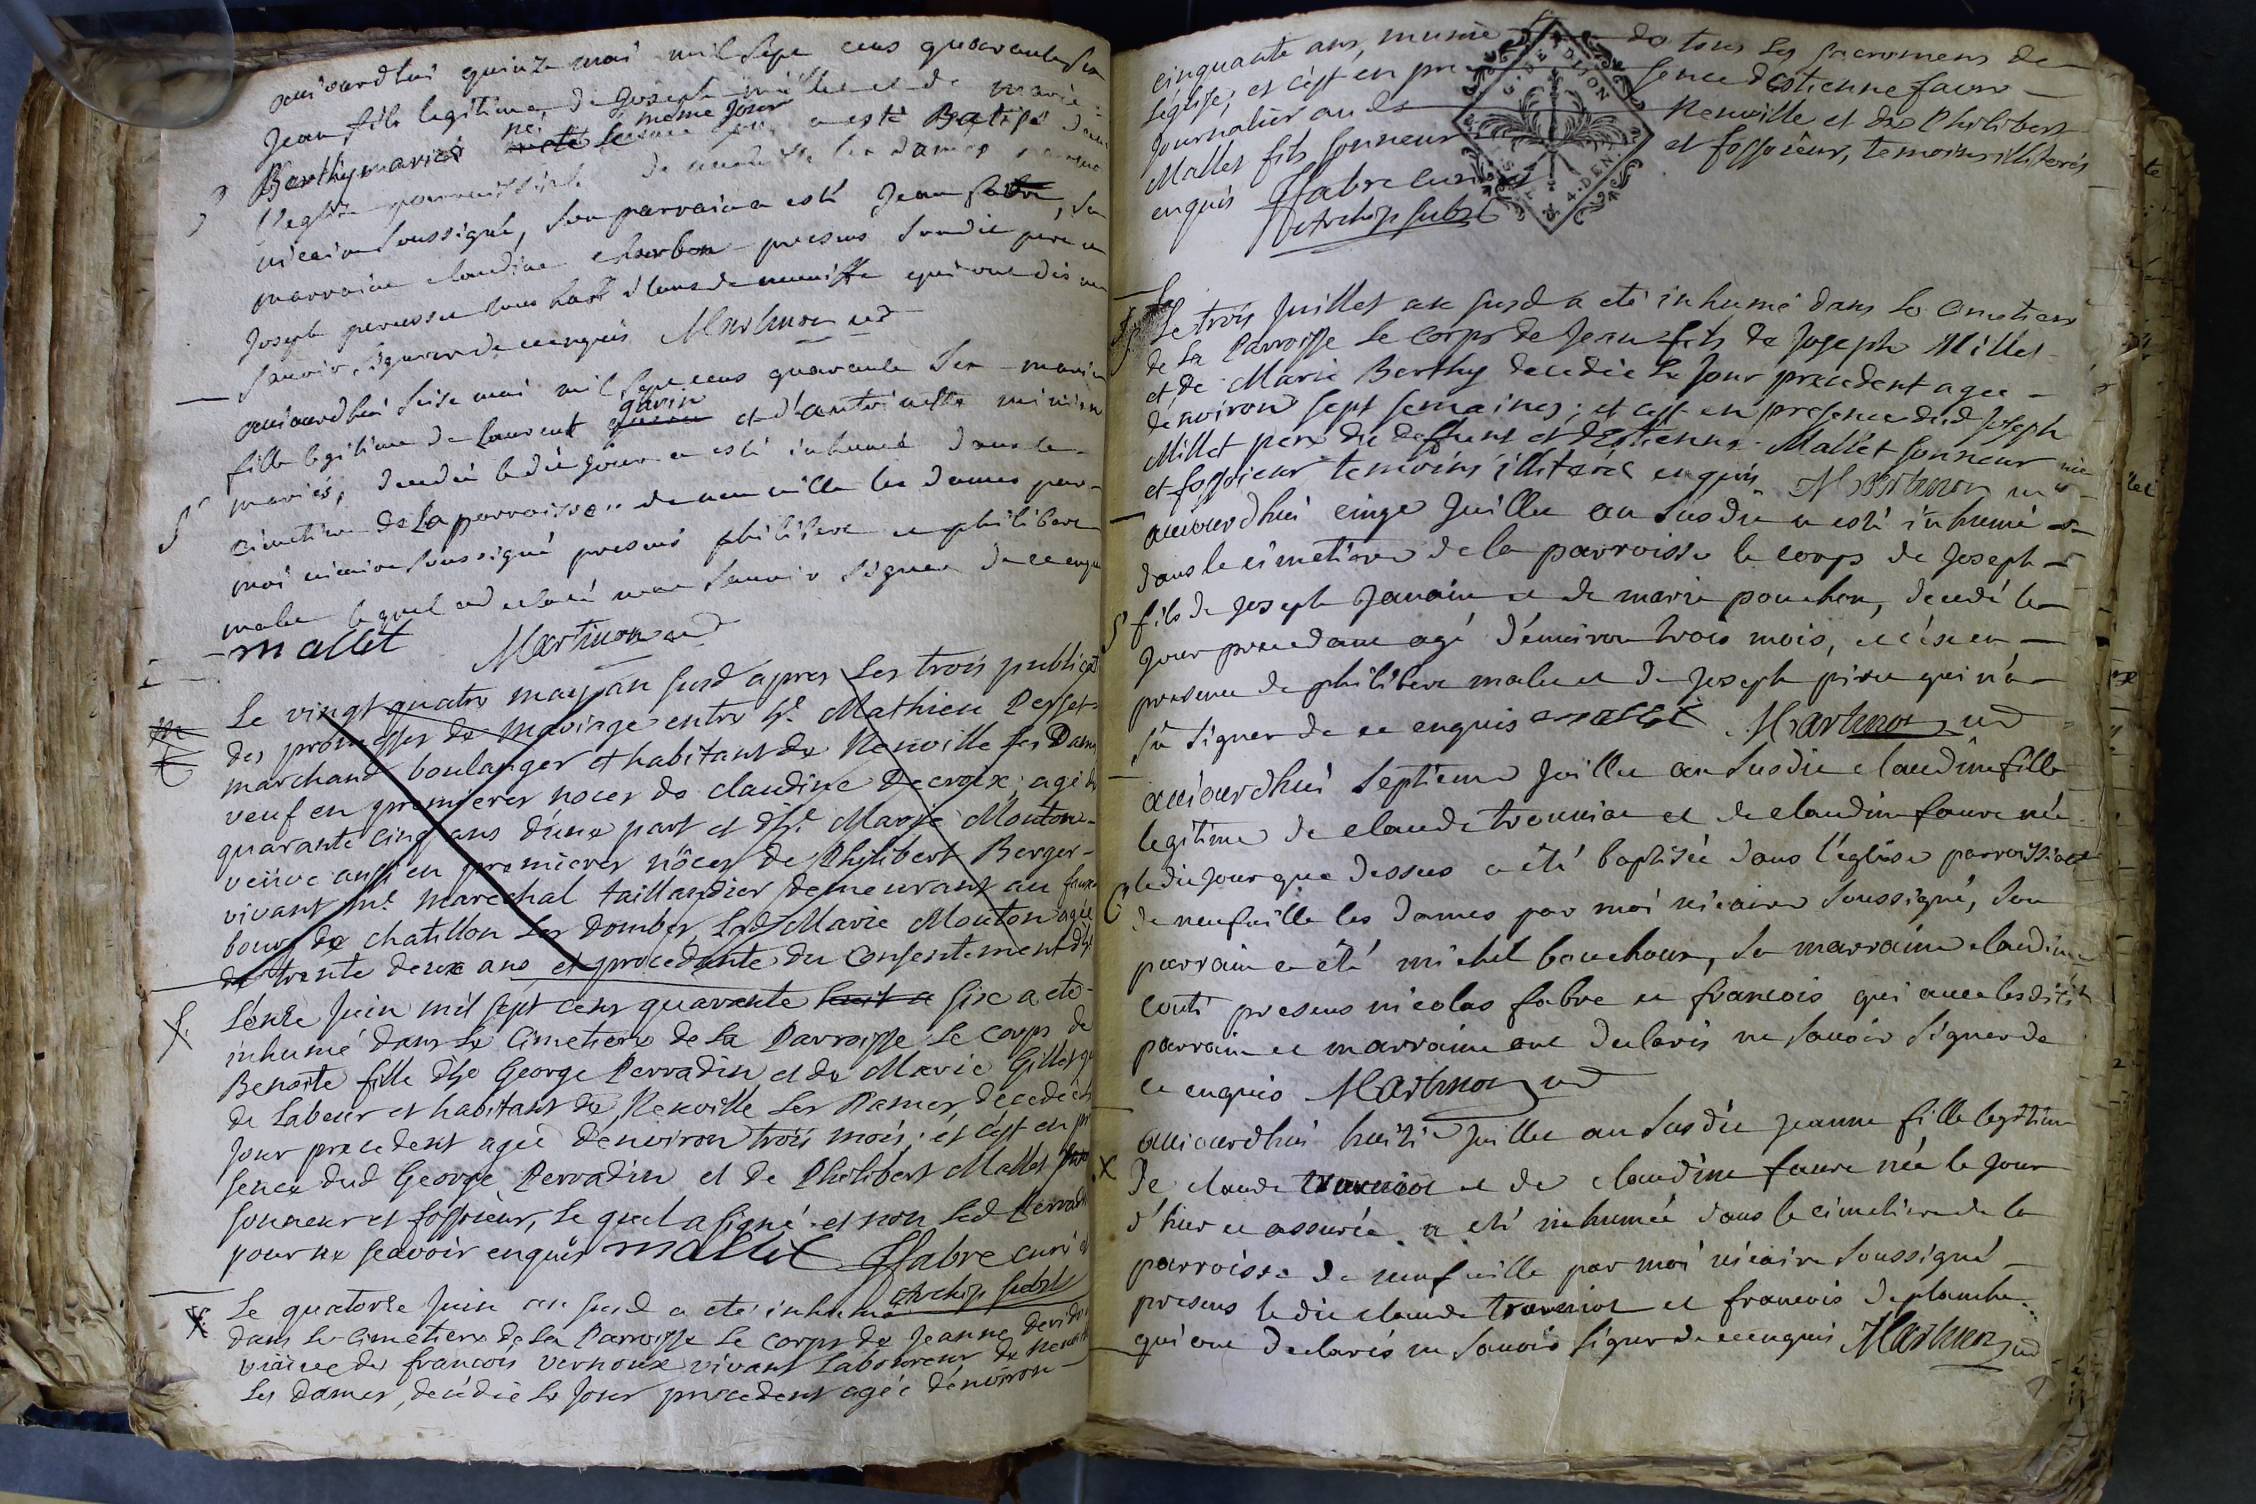 aujourdhui quinze mai mil sept cens quarante six
Jean fils legitime de Joseph millet et de marie
Berthy mariés né, le même jour a esté Batisé dans
l'eglise parroissiale de neuville les dames
vicaire soussigné, son parrain a esté Jean fabre, sa
marraine claudine charbon presens laurdit pere et
Joseph
savoir signer de ce enquis Martinon vic
aujourdhui seise mai mil sept cens quarante six marie
fille legitime de Laurent guerin et d'antoinette
mariés, decedée ledit jour a esté inhumée dans le
cimetiere de la parroisse de neuville les dames par
moi vicaire soussigné presens philibert et philibert
malet lequel a declaré ne savoir signer de ce enquis
mallet Martinon vic
Le vingt quatre may an susd apres les trois publicat
des promesses de mariage entre hle Mathieu Perset
marchand boulanger et habitant de Neuville les Dames
veuf en premieres noces de claudine Decroix, agé de
quarante cinq ans d'une part et d'hle Marie Mouton
veüve aussi en premieres nôces de Philibert Berger
vivant me marechal taillandier demeurant au faux
bourg de chatillon les Dombes, lad Marie Mouton agée
de trente deux ans et procedante du consentement d'hle
L'onze Juin mil sept cens quarante huit a six a eté
inhumé dans le Cimetiere de la Parroisse le corps de
Benoite fille d'hle George Perradin et de Marie Gillet
de Labeur et habitant de Neuville les Dames, decedée le
jour precedent agée d'environ trois mois; et c'est en pre
sence dud George Perradin et de Philibert Mallet
sonneur et fossoieur, lequel a signé et non led Perradin
pour ne sçavoir enquis mallet Ffabre curé et
archip subst
Le quatorze Juin an susd a eté inhumé
dans le Cimetiere de la Parroisse le corps de Jeanne
veüve de francois vernoux vivant Laboureur de Neuville
les dames, decedée le jour precedent agée d'environ
cinquante ans, munie de tous les sacremens de
l'eglise, et c'est en pre sence d'estienne favre
journalier au Neuville et de Philibert
Mallet fils sonneur et fossoieur, temoins illiterés
enquis Ffabre curé et
archip subst
G. DE DIJON
4. DEN.
Le trois Juillet an susd a eté inhumé dans le Cimetiere
de la Parroisse le corps de Jean fils de Joseph Millet
et de Marie Berthy decedée le jour precedent agee
d'environ sept semaines; et c'est en presence dud Joseph
Millet pere du deffunt et d'Estienne Mallet sonneur
et fossoieur temoins illiterés enquis Martinon vic
aujourdhui cinqe Juillet an susdit a esté inhumé
dans le cimetiere de la parroisse le corps de Joseph
fils de Joseph Janain et de marie pouchon, decedé le
jour precedant agé d'environ trois mois, et c'est en
presence de philibert malet et de Joseph pirie qui n'a
su signer de ce enquis mallet Martinon vic
aujourdhui septieme Juillet an susdit claudine fille
legitime de claude travniot et de claudine faure née
ledit jour que dessus a été baptisée dans l'eglise parroissiale
de neufville les dames par moi vicaire soussigné, son
parrain a été michel bouchoux, sa marraine claudine
conti presens nicolas fabre et francois qui avec lesdits
parrain et marraine ont declarés ne savoir signer de
ce enquis Martinon vic
aujourdhui huiti Juillet an susdit jeanne fille legitime
de claude travniot et de claudine faure née le jour
d'hier et assurée a eté inhumée dans le cimetiere de la
parroisse de neufville par moi vicaire soussigné
presens ledit claude travniot et francois deplanche
qui ont declarés ne savoir signer de ce enquis Martinon vic